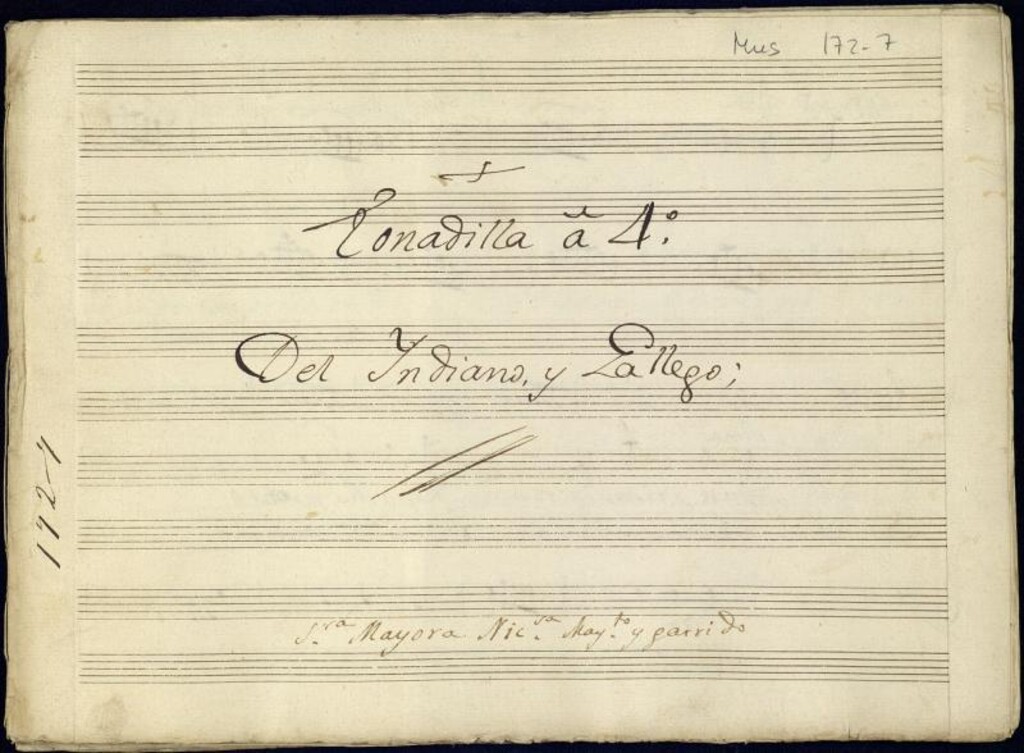 Mus 172-7
Tonadilla â 4º.
Del Yndiano, y Gallego;
172-7
S.ra Mayora Nic.sa May.to y garrido